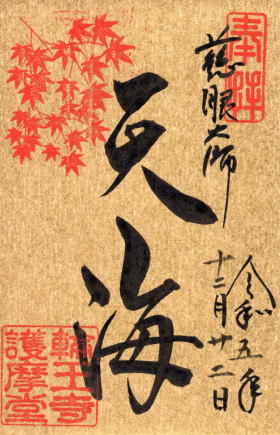 奉拝
慈眼大師
天海
令和五年
十二月廿二日
輪王寺
護摩堂